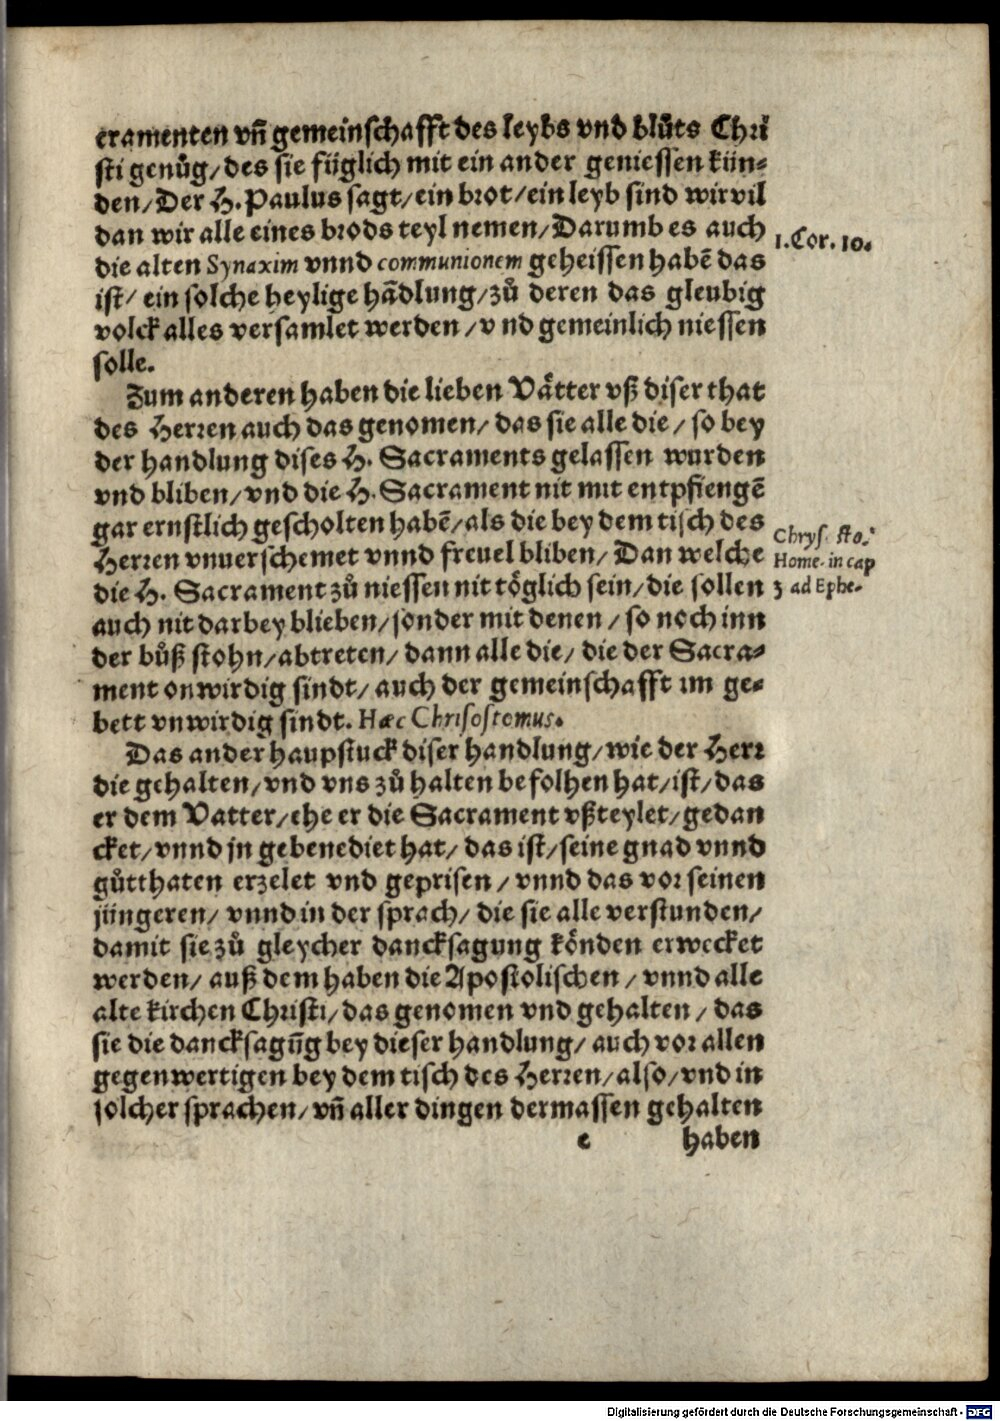 cramenten vñ gemeinschafft des leybs vnd blůts Chri
sti genůg/ des sie füglich mit ein ander geniessen kün-
den/ Der H. Paulus sagt/ ein brot/ ein leyb sind wir vil
dan wir alle eines brods teyl nemen/ Darumb es auch
1. Cor. 10.
die alten Synaxim vnnd communionem geheissen habē das
ist/ ein solche heylige hādlung/ zů deren das gleubig
volck alles versamlet werden/ vnd gemeinlich niessen
solle.
Zum anderen haben die lieben Våtter vß diser that
des Herren auch das genomen/ das sie alle die/ so bey
der handlung dises H. Sacraments gelassen wurden
vnd bliben/ vnd die H. Sacrament nit mit entpfiengē
gar ernstlich gescholten habē/ als die bey dem tisch des
Chrysosto.
Herren vnuerschemet vnnd freuel bliben/ Dan welche
Home. in cap
die H. Sacrament zů niessen nit tőglich sein/ die sollen
3 ad Ephe.
auch nit darbey blieben/ sonder mit denen/ so noch inn
der bůß stohn/ abtreten/ dann alle die/ die der Sacra-
ment onwirdig sindt/ auch der gemeinschafft im ge-
bett vnwirdig sindt. Hæc Chrisostomus.
Das ander haupstuck diser handlung/ wie der Herr
die gehalten/ vnd vns zů halten befolhen hat/ ist/ das
er dem Vatter/ ehe er die Sacrament vßteylet/ gedan
cket/ vnnd jn gebenediet hat/ das ist/ seine gnad vnnd
gůtthaten erzelet vnd geprisen/ vnnd das vor seinen
jüngeren/ vnnd in der sprach/ die sie alle verstunden/
damit sie zů gleycher dancksagung kőnden erwecket
werden/ auß dem haben die Apostolischen/ vnnd alle
alte kirchen Christi/ das genomen vnd gehalten/ das
sie die dancksagūg bey dieser handlung/ auch vor allen
gegenwertigen bey dem tisch des Herren/ also/ vnd in
solcher sprachen/ vñ aller dingen dermassen gehalten
e haben
Digitalisierung gefördert durch die Deutsche Forschungsgemeinschaft - DFG